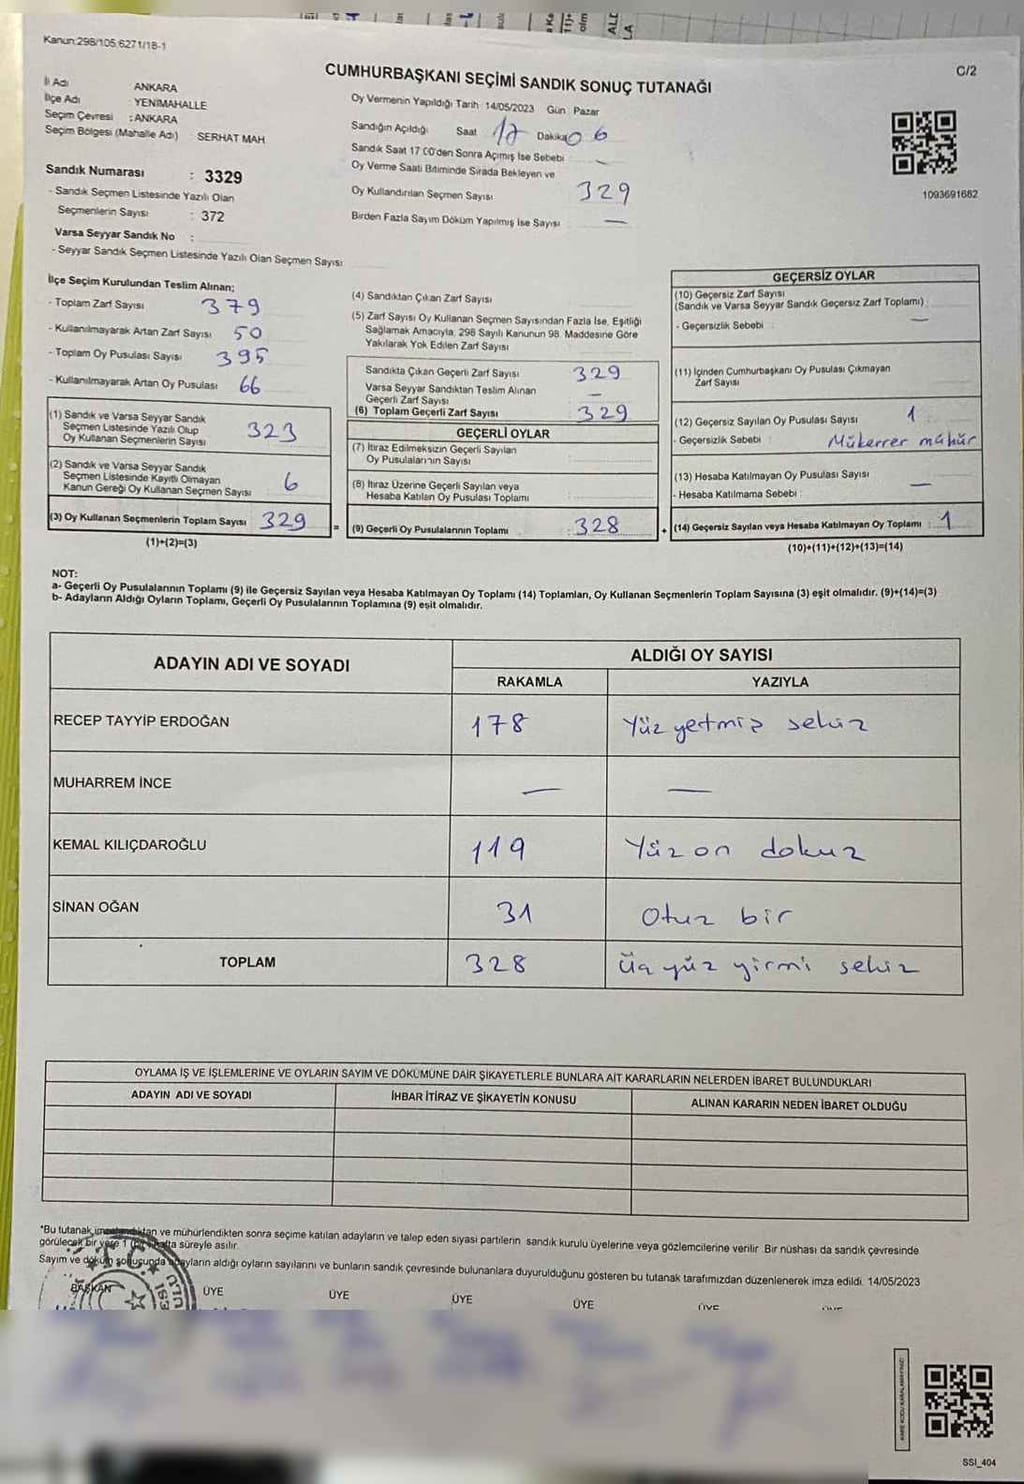 Kanun:298/105.6271/18-1
C/2
CUMHURBAŞKANI SEÇİMİ SANDIK SONUÇ TUTANAĞI
İl Adı ANKARA
İlçe Adı : YENİMAHALLE
Seçim Çevresi : ANKARA
Seçim Bölgesi (Mahalle Adı) : SERHAT MAH
Sandık Numarası : 3329
- Sandık Seçmen Listesinde Yazılı Olan
Seçmenlerin Sayısı : 372
Varsa Seyyar Sandık No :
- Seyyar Sandık Seçmen Listesinde Yazılı Olan Seçmen Sayısı:
Oy Vermenin Yapıldığı Tarih: 14/05/2023 Gün : Pazar
Sandığın Açıldığı Saat 17 Dakika 06
Sandık Saat 17.00'den Sonra Açımış İse Sebebi –
Oy Verme Saati Bitiminde Sırada Bekleyen ve
Oy Kullandırılan Seçmen Sayısı 329
Birden Fazla Sayım Döküm Yapılmış İse Sayısı —
1093691682
İlçe Seçim Kurulundan Teslim Alınan;
- Toplam Zarf Sayısı 379
- Kullanılmayarak Artan Zarf Sayısı 50
- Toplam Oy Pusulası Sayısı 395
- Kullanılmayarak Artan Oy Pusulası 66
(1) Sandık ve Varsa Seyyar Sandık
Seçmen Listesinde Yazılı Olup
Oy Kullanan Seçmenlerin Sayısı 323
(2) Sandık ve Varsa Seyyar Sandık
Seçmen Listesinde Kayıtlı Olmayan
Kanun Gereği Oy Kullanan Seçmen Sayısı 6
(3) Oy Kullanan Seçmenlerin Toplam Sayısı 329
(1)+(2)=(3)
(4) Sandıktan Çıkan Zarf Sayısı
(5) Zarf Sayısı Oy Kullanan Seçmen Sayısından Fazla İse, Eşitliği
Sağlamak Amacıyla, 298 Sayılı Kanunun 98. Maddesine Göre
Yakılarak Yok Edilen Zarf Sayısı
Sandıkta Çıkan Geçerli Zarf Sayısı 329
Varsa Seyyar Sandıktan Teslim Alınan
Geçerli Zarf Sayısı –
(6) Toplam Geçerli Zarf Sayısı 329
GEÇERLİ OYLAR
(7) İtiraz Edilmeksizin Geçerli Sayılan
Oy Pusulalarının Sayısı
(8) İtiraz Üzerine Geçerli Sayılan veya
Hesaba Katılan Oy Pusulası Toplamı
= (9) Geçerli Oy Pusulalarının Toplamı : 328
GEÇERSİZ OYLAR
(10) Geçersiz Zarf Sayısı
(Sandık ve Varsa Seyyar Sandık Geçersiz Zarf Toplamı) —
- Geçersizlik Sebebi
(11) İçinden Cumhurbaşkanı Oy Pusulası Çıkmayan
Zarf Sayısı
(12) Geçersiz Sayılan Oy Pusulası Sayısı 1
- Geçersizlik Sebebi : Mükerrer mühür
(13) Hesaba Katılmayan Oy Pusulası Sayısı —
- Hesaba Katılmama Sebebi :
+ (14) Geçersiz Sayılan veya Hesaba Katılmayan Oy Toplamı : 1
(10)+(11)+(12)+(13)=(14)
NOT:
a- Geçerli Oy Pusulalarının Toplamı (9) ile Geçersiz Sayılan veya Hesaba Katılmayan Oy Toplamı (14) Toplamları, Oy Kullanan Seçmenlerin Toplam Sayısına (3) eşit olmalıdır. (9)+(14)=(3)
b- Adayların Aldığı Oyların Toplamı, Geçerli Oy Pusulalarının Toplamına (9) eşit olmalıdır.
ADAYIN ADI VE SOYADI ALDIĞI OY SAYISI
RAKAMLA YAZIYLA
RECEP TAYYİP ERDOĞAN 178 Yüz yetmiş sekiz
MUHARREM İNCE — —
KEMAL KILIÇDAROĞLU 119 Yüz on dokuz
SİNAN OĞAN 31 Otuz bir
TOPLAM 328 Üç yüz yirmi sekiz
OYLAMA İŞ VE İŞLEMLERİNE VE OYLARIN SAYIM VE DÖKÜMÜNE DAİR ŞİKAYETLERLE BUNLARA AİT KARARLARIN NELERDEN İBARET BULUNDUKLARI
ADAYIN ADI VE SOYADI İHBAR İTİRAZ VE ŞİKAYETİN KONUSU ALINAN KARARIN NEDEN İBARET OLDUĞU
*Bu tutanak ve mühürlendikten sonra seçime katılan adayların ve talep eden siyasi partilerin sandık kurulu üyelerine veya gözlemcilerine verilir. Bir nüshası da sandık çevresinde
görülecek bir yere 1 (bir) hafta süreyle asılır.
Sayım ve döküm sonucunda adayların aldığı oyların sayılarını ve bunların sandık çevresinde bulunanlara duyurulduğunu gösteren bu tutanak tarafımızdan düzenlenerek imza edildi. 14/05/2023
BAŞKAN ÜYE ÜYE ÜYE ÜYE ÜYE
SSI_404